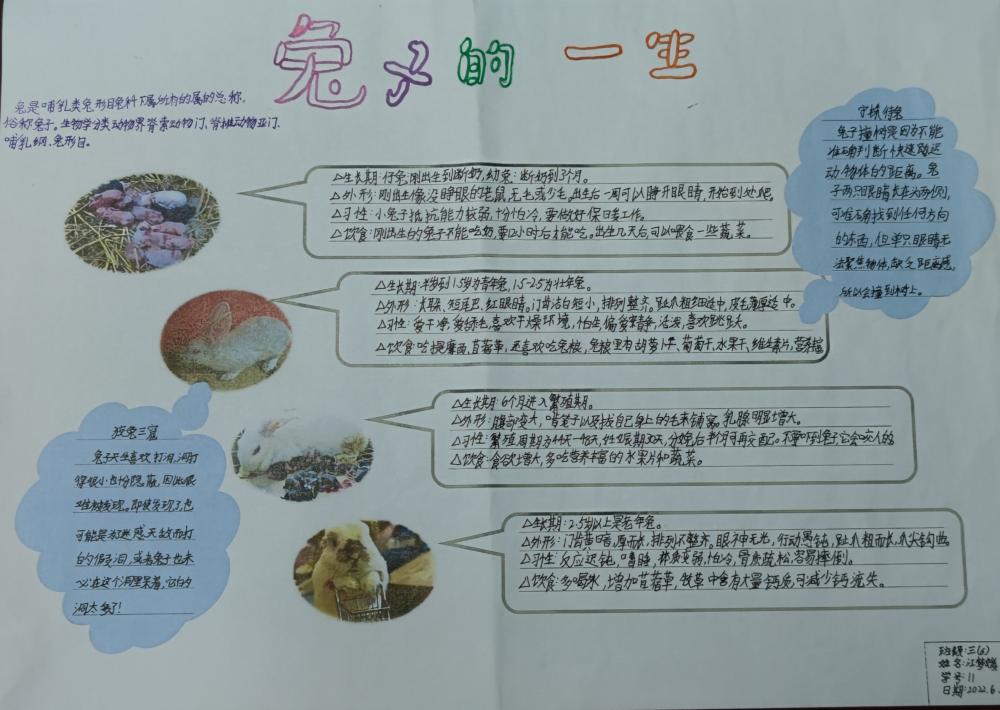 兔子的一生
兔是哺乳类兔形目兔科下属所有的属的总称,
俗称兔子。生物学分类动物界脊索动物门、脊椎动物亚门、
哺乳纲、兔形目。
△生长期:仔兔:刚出生到断奶,幼兔:断奶到3个月。
△外形:刚出生像没睁眼的老鼠,无毛或少毛。出生后一周可以睁开眼睛,开始到处爬。
△习性:小兔子抵抗能力较弱,十份怕冷,要做好保暖工作。
△饮食:刚出生白的兔子不能吃奶,要12小时后才能吃。出生几天后,可以喂食一些蔬菜。
守株待兔
兔子撞树是因为不能
准确判断快速随近
动物体的距离。兔
子两只眼睛长在头两侧,
可准确找到任何方向
的东西,但单只眼睛无
法聚焦物体,缺乏距离感,
所以会撞到树上。
△生长期:半岁到1.5岁为青年兔,1.5-2.5为壮年兔。
△外形:大耳朵、短尾巴、红眼睛。门齿洁白短小,排列整齐。趾爪粗细适中,皮毛薄厚适中。
△习性:爱干净,喜欢干燥环境,怕生,偏爱素静,活泼,喜欢跳跃。
△饮食:吃提摩西、苜蓿草,还喜欢吃兔粮,兔粮里有胡萝卜干、葡萄干、水果干、维生素片,营养
△生长期:6个月进入繁殖期。
△外形:腹部变大,啃笼子以及找自己身上的毛来铺窝。乳腺明显增大。
△习性:繁殖周期为44天-46天,妊娠期30天,分娩后半个月再交配。不要吓到兔子它会咬人的
△饮食:食欲增大,多吃营养丰富的水果片和蔬菜。
狡兔三窟
兔子天生喜欢打洞,洞打
得很小也十份隐蔽,因此很
难被发现。即使发现了也
可能是为迷惑天敌而打
的假洞,或者兔子也未
必在这个洞里呆着,它的
洞太多了!
△生长期:2.5岁以上是老年兔。
△外形:门齿黄暗,厚而长,排列不整齐。眼神无光,行动愚钝,趾爪粗而长,爪尖钩曲。
△习性:反应迟钝,嗜睡,体质变弱,怕冷,骨质疏松,容易摔倒。
△饮食:多喝水,增加苜蓿草,牧草中含有大量钙质,可减少钙流失。
班级:三(5)
姓名:江梦
学号:11
日期:2022.6.